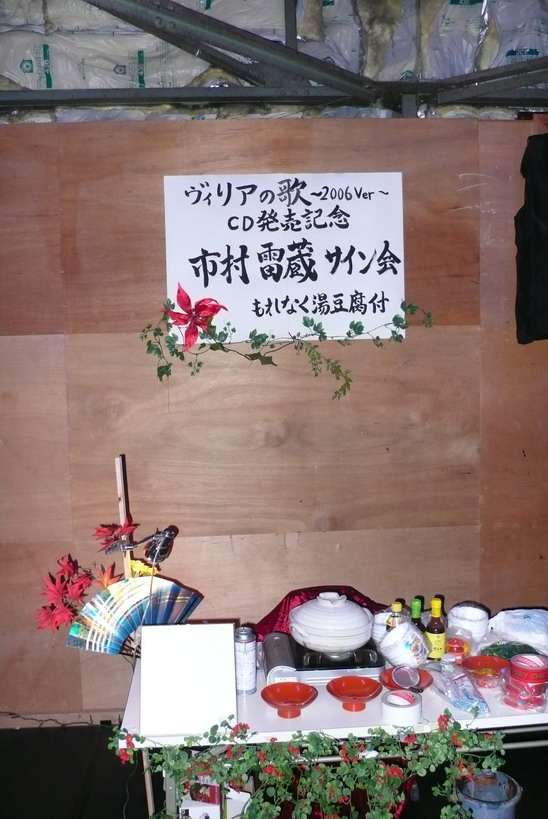 ヴィリアの歌~2006 Ver~
CD発売記念
市村 雷蔵 サイン会
もれなく湯豆腐付